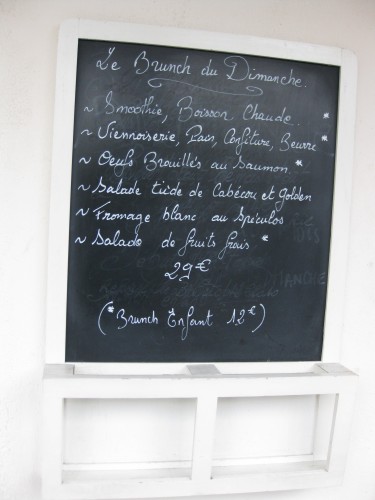 Le Brunch du Dimanche.
~ Smoothie, Boisson Chaude *
~ Viennoiserie, Pain, Confiture, Beurre *
~ Oeufs Brouillés au Saumon *
~ Salade tiède de Cabécou et Golden
~ Fromage blanc au Spéculos
~ Salade de fruits frais *
29€
(*Brunch Enfant 12€)